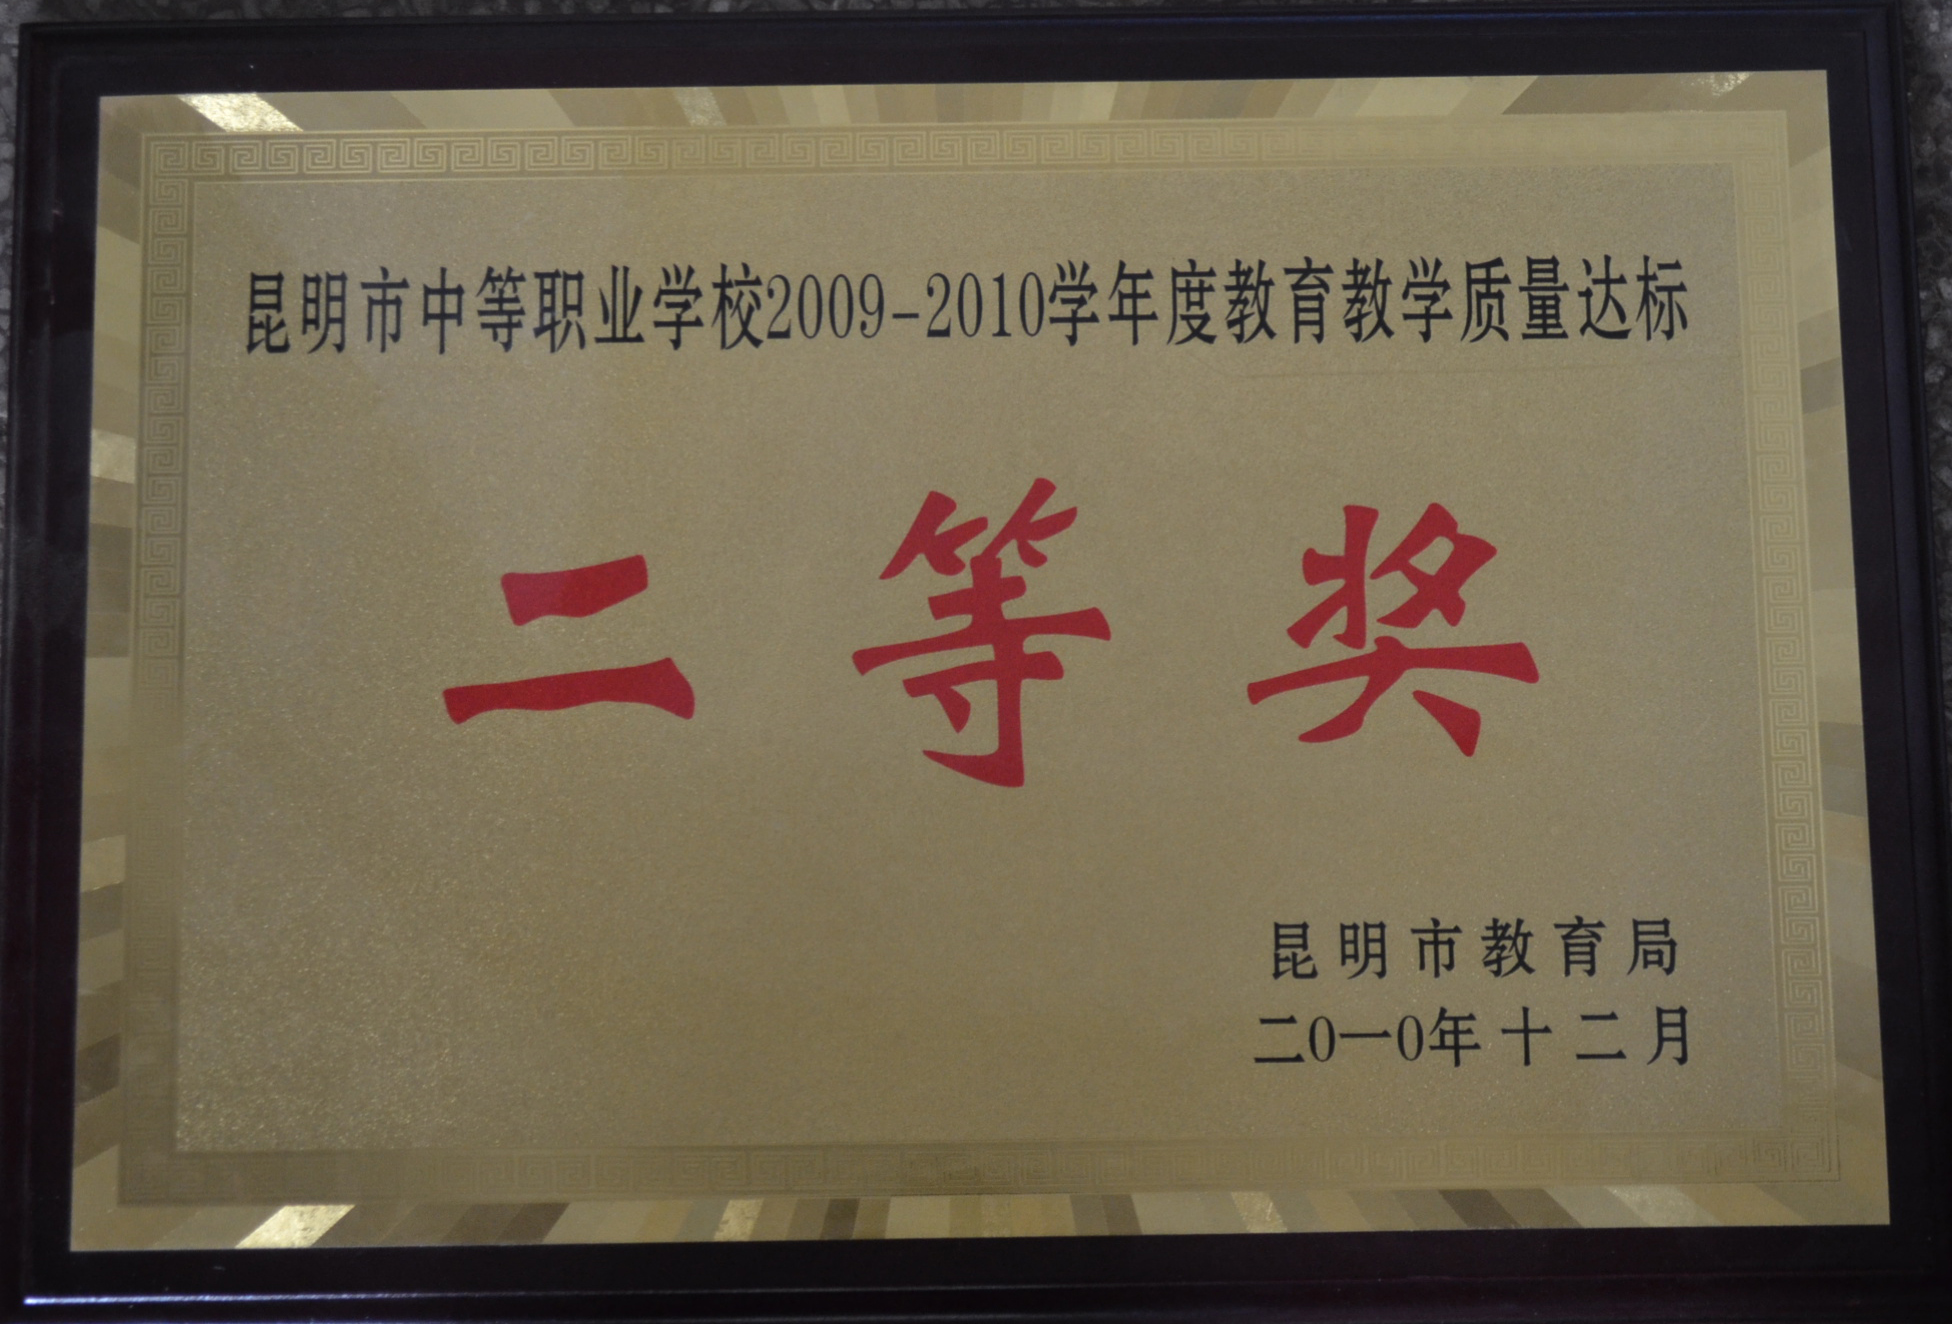 昆明市中等职业学校2009-2010学年度教育教学质量达标
二等奖
昆明市教育局
二0一0年十二月